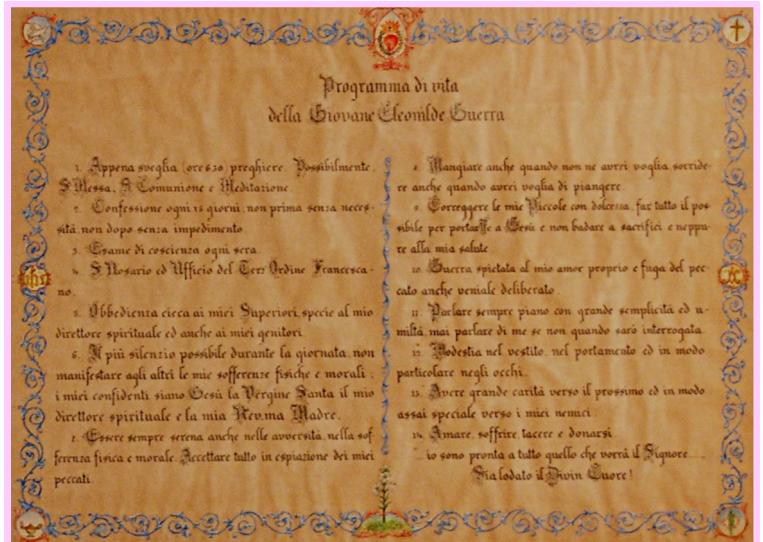 Programma di vita
della Giovane Cleonilde Guerra
1. Appena sveglia (ore 6.30) preghiere. Possibilmente,
S. Messa, S. Comunione e Meditazione.
2. Confessione ogni 15 giorni, non prima senza neces-
sità, non dopo senza impedimento.
3. Esame di coscienza ogni sera.
4. S. Rosario ed Ufficio del Terz'Ordine Francesca-
no.
5. Obbedienza cieca ai miei Superiori, specie al mio
direttore spirituale ed anche ai miei genitori.
6. Il più silenzio possibile durante la giornata, non
manifestare agli altri le mie sofferenze fisiche e morali;
i miei confidenti siano Gesù la Vergine Santa il mio
direttore spirituale e la mia Rev.ma Madre.
7. Essere sempre serena anche nelle avversità, nella sof
ferenza fisica e morale. Accettare tutto in espiazione dei miei
peccati.
8. Mangiare anche quando non ne avrei voglia, sorride-
re anche quando avrei voglia di piangere.
9. Correggere le mie Piccole con dolcezza, far tutto il pos-
sibile per portarle a Gesù e non badare a sacrifici e neppu-
re alla mia salute.
10. Guerra spietata al mio amor proprio e fuga del pec-
cato anche veniale deliberato.
11. Parlare sempre piano con grande semplicità ed u-
miltà, mai parlare di me se non quando sarò interrogata.
12. Modestia nel vestito, nel portamento ed in modo
particolare negli occhi.
13. Avere grande carità verso il prossimo ed in modo
assai speciale verso i miei nemici.
14. Amare, soffrire, tacere e donarsi.
... io sono pronta a tutto quello che vorrà il Signore ...
Sia lodato il Divin Cuore!
ihs